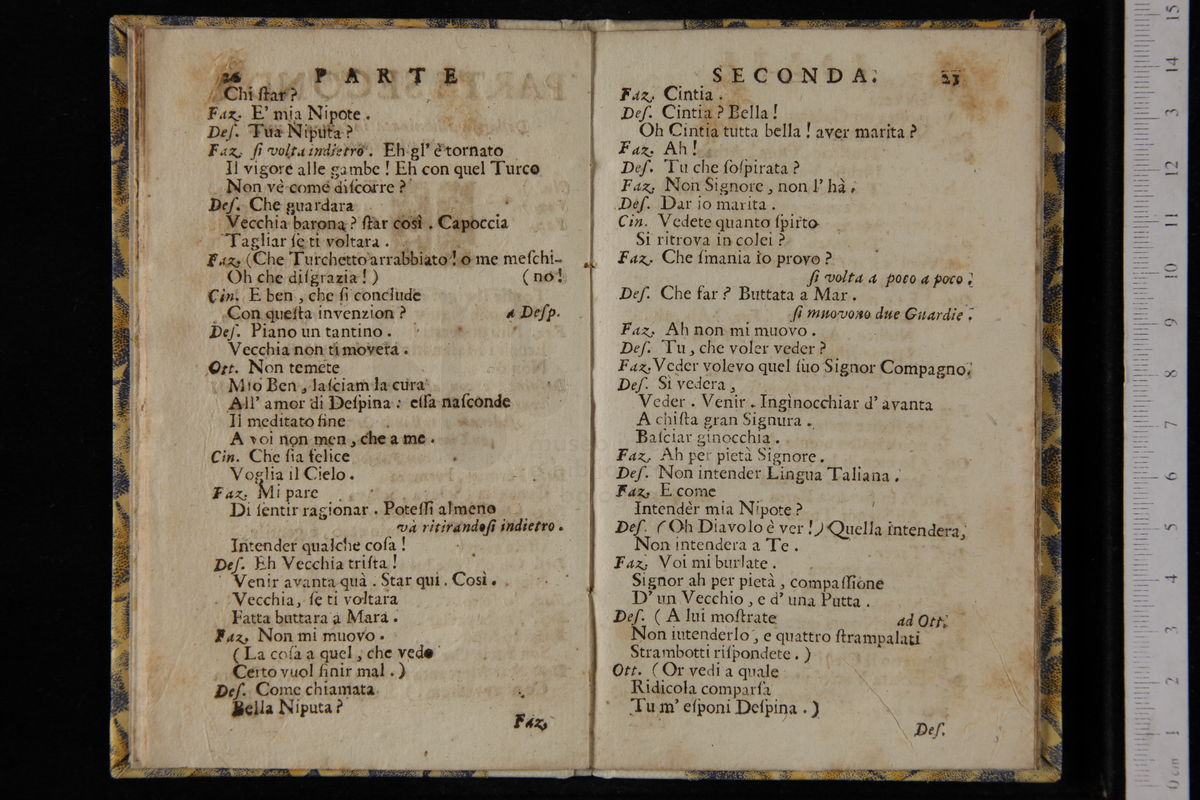 26 PARTE
Chi ſtar ?
Faz. E' mia Nipote .
Deſ. Tua Niputa ?
Faz. ſi volta indietro . Eh gl' è tornato
Il vigore alle gambe ! Eh con quel Turco
Non vè come diſcorre ?
Deſ. Che guardara
Vecchia barona ? ſtar così . Capoccia
Tagliar ſe ti voltara .
Faz. (Che Turchetto arrabbiato ! o me meſchi-
Oh che diſgrazia ! ) ( no !
Cin. E ben , che ſi conclude
Con queſta invenzion ? a Deſp.
Deſ. Piano un tantino .
Vecchia non ti movera .
Ott. Non temete
Mio Ben , laſciam la cura
All' amor di Deſpina : eſſa naſconde
Il meditato fine
A voi non men , che a me .
Cin. Che ſia felice
Voglia il Cielo .
Faz. Mi pare
Di ſentir ragionar . Poteſſi almeno
và ritirandoſi indietro .
Intender qualche coſa !
Deſ. Eh Vecchia triſta !
Venir avanta quà . Star qui . Così .
Vecchia , ſe ti voltara
Fatta buttara a Mara .
Faz. Non mi muovo .
( La coſa a quel , che vedo
Certo vuol finir mal . )
Deſ. Come chiamata
Bella Niputa ?
Faz.
SECONDA.
Faz. Cintia .
Deſ. Cintia ? Bella !
Oh Cintia tutta bella ! aver marita ?
Faz. Ah !
Deſ. Tu che ſoſpirata ?
Faz. Non Signore , non l' hà .
Deſ. Dar io marita .
Cin. Vedete quanto ſpirto
Si ritrova in colei ?
Faz. Che ſmania ìo provo ?
ſi volta a poco a poco .
Deſ. Che far ? Buttata a Mar .
ſi muovono due Guardie .
Faz. Ah non mi muovo .
Deſ. Tu , che voler veder ?
Faz. Veder volevo quel ſuo Signor Compagno.
Deſ. Si vedera ,
Veder . Venir . Inginocchiar d' avanta
A chiſta gran Signura .
Baſciar ginocchia .
Faz. Ah per pietà Signore .
Deſ. Non intender Lingua Taliana .
Faz. E come
Intendèr mia Nipote ?
Deſ. ( Oh Diavolo è ver ! ) Quella intendera,
Non intendera a Te .
Faz. Voi mi burlate .
Signor ah per pietà , compaſſione
D' un Vecchio , e d' una Putta .
Deſ. ( A lui moſtrate ad Ott.
Non iutenderlo , e quattro ſtrampalati
Strambotti riſpondete . )
Ott. ( Or vedi a quale
Ridicola comparſa
Tu m' eſponi Deſpina . )
Deſ.
15
14
13
12
11
10
9
8
7
6
5
4
3
2
1
0 cm